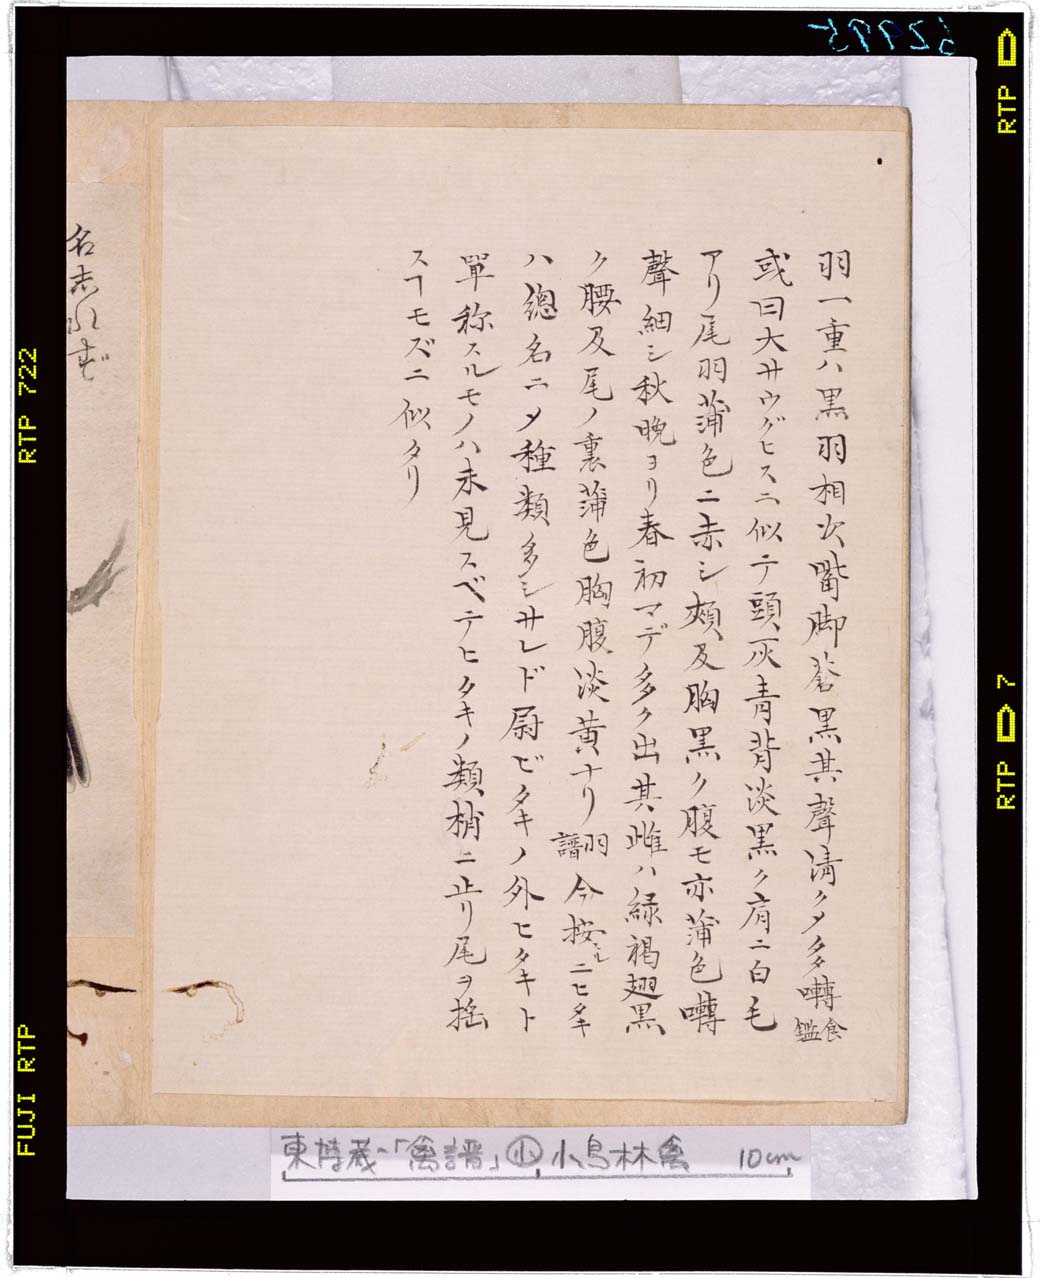 羽一重ハ黒羽相次嘴脚蒼黒其聲清クメ多囀食鑑
或曰大サウグヒスニ似テ頭灰青背淡黒ク肩ニ白毛
アリ尾羽蒲色ニ赤シ頰及胸黒ク腹モ亦蒲色囀
聲細シ秋晩ヨリ春初マデ多ク出其雌ハ緑褐翅黒
ク腰及尾ノ裏蒲色胸腹淡黄ナリ羽譜今按ルニヒタキ
ハ總名ニメ種類多シサレド尉ビタキノ外ヒタキト
單称スルモノハ未見スベテヒタキノ類梢ニ止リ尾ヲ揺
スヿモズニ似タリ
東博蔵「禽譜」小 小鳥林禽 10cm
62995
RTP
RTP 7
RTP 722
FUJI RTP